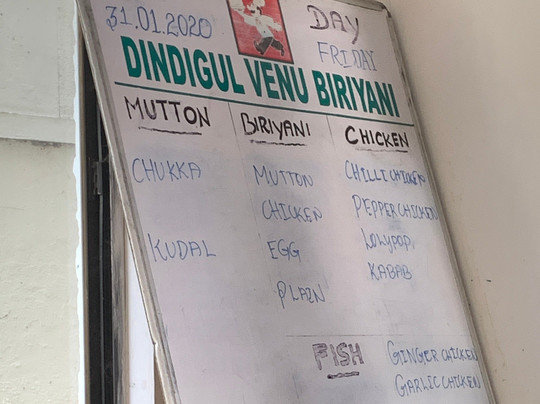 31.01.2020
DAY
FRIDAY
DINDIGUL VENU BIRIYANI
MUTTON BIRIYANI CHICKEN
CHUKKA MUTTON CHILLI CHICKEN
CHICKEN PEPPER CHICKEN
KUDAL EGG LOLYPOP
PLAIN KABAB
FISH GINGER CHICKEN
GARLIC CHICKEN